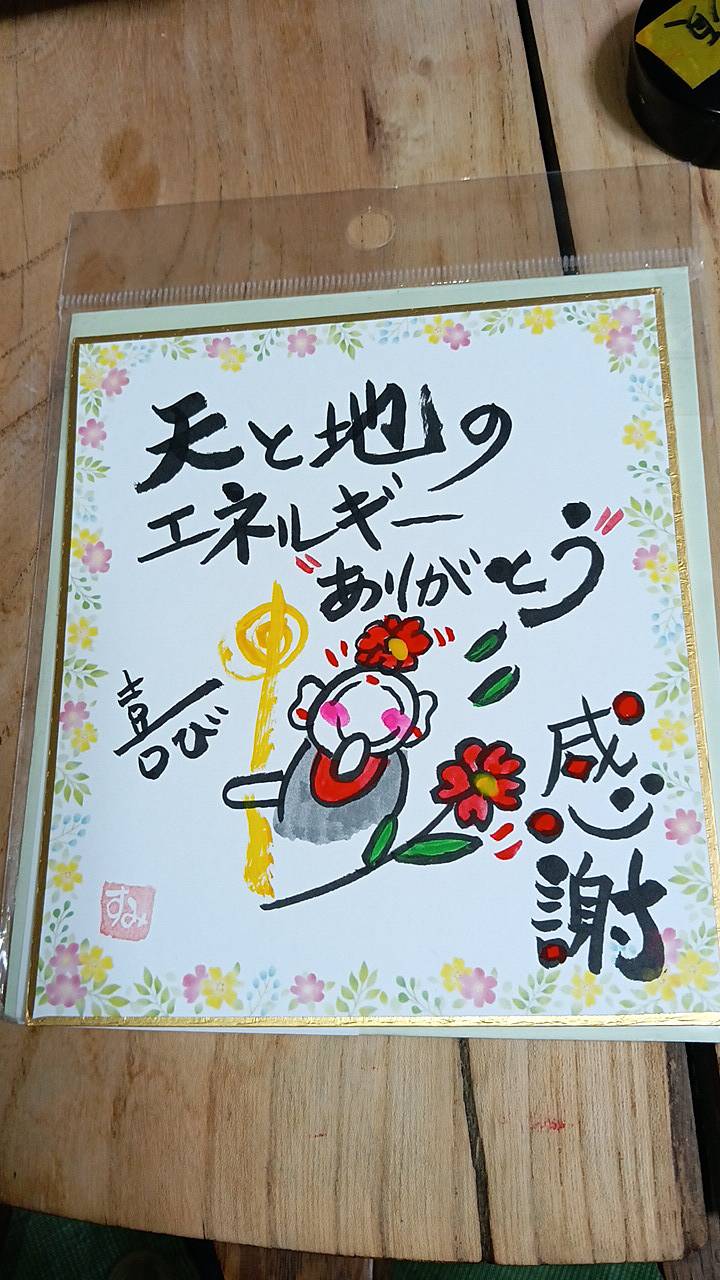 天と地の
エネルギー
ありがとう
喜び
感謝
すみ